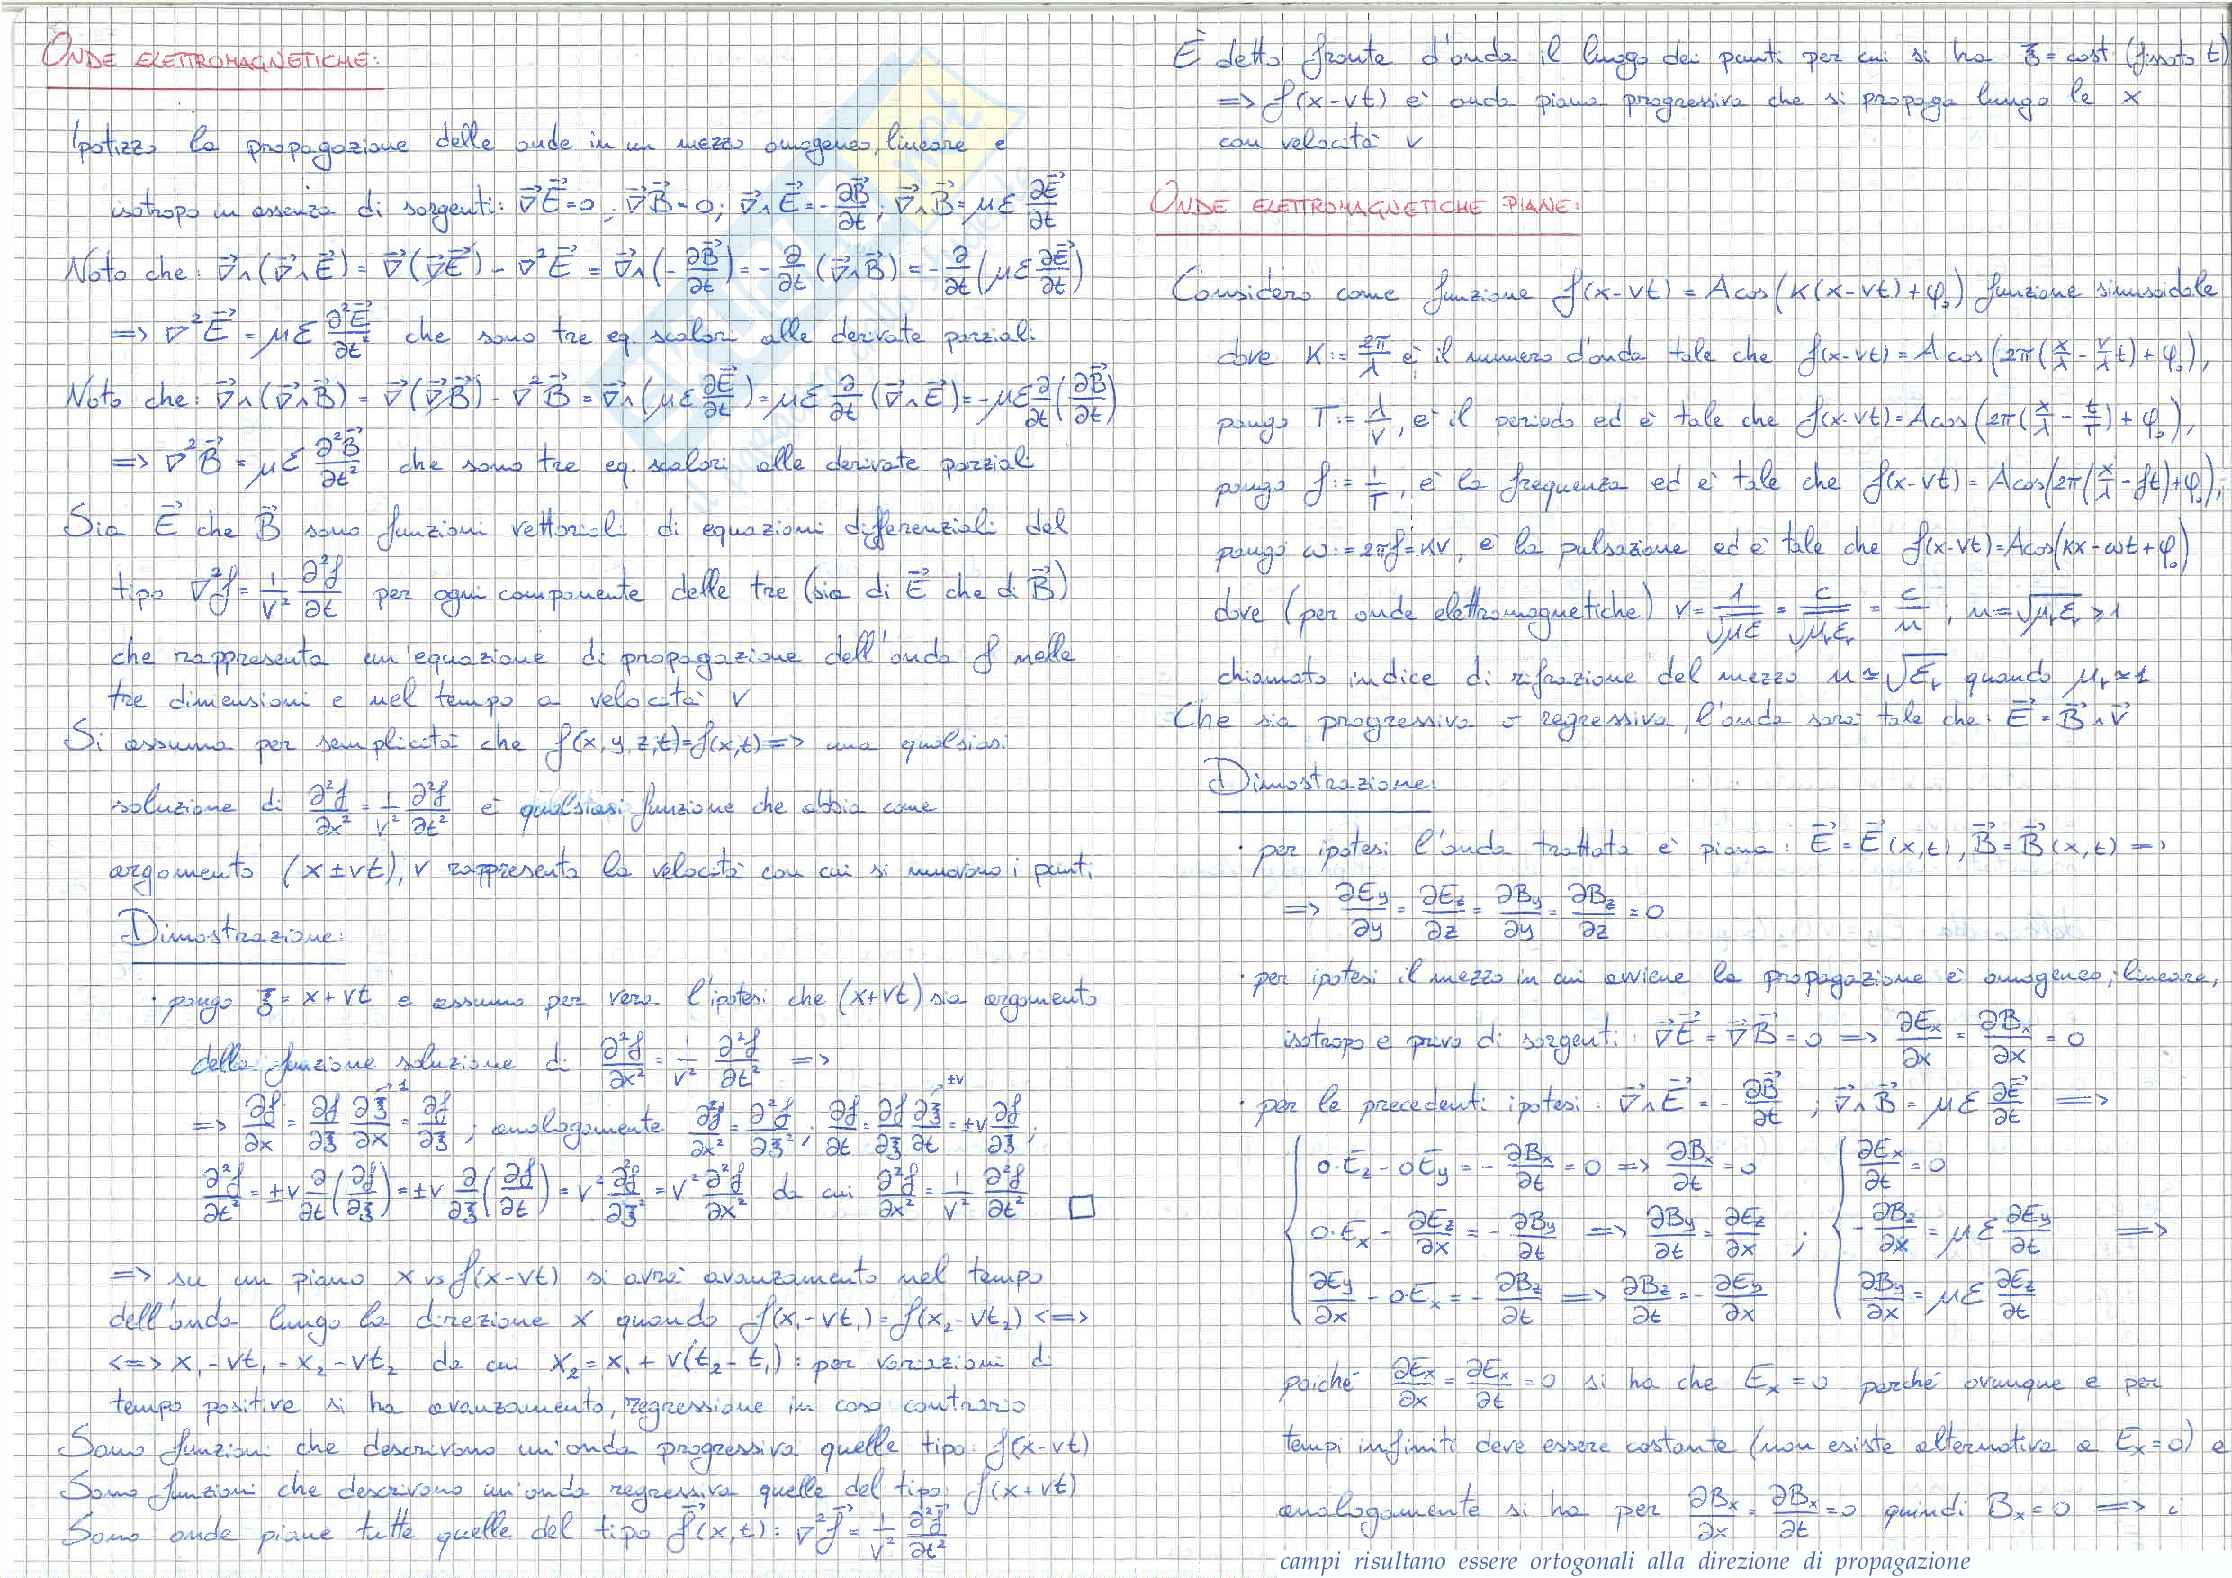 ONDE ELETTROMAGNETICHE:
Ipotizzo la propagazione delle onde in un mezzo omogeneo, lineare e
isotropo in assenza di sorgenti: ∇⃗E⃗=0 ; ∇⃗B⃗=0; ∇⃗∧E⃗=-∂B⃗/∂t; ∇⃗∧B⃗=με ∂E⃗/∂t
Noto che: ∇⃗∧(∇⃗∧E⃗) = ∇⃗(∇⃗E⃗) - ∇²E⃗ = ∇⃗∧(-∂B⃗/∂t) = -∂/∂t (∇⃗∧B⃗) = -∂/∂t (με ∂E⃗/∂t)
=> ∇²E⃗ = με ∂²E⃗/∂t² che sono tre eq. scalari alle derivate parziali.
Noto che: ∇⃗∧(∇⃗∧B⃗) = ∇⃗(∇⃗B⃗) - ∇²B⃗ = ∇⃗∧(με ∂E⃗/∂t) = με ∂/∂t (∇⃗∧E⃗) = -με ∂/∂t (∂B⃗/∂t)
=> ∇²B⃗ = με ∂²B⃗/∂t² che sono tre eq. scalari alle derivate parziali
Sia E⃗ che B⃗ sono funzioni vettoriali di equazioni differenziali del
tipo ∇²f = 1/v² ∂²f/∂t per ogni componente delle tre (sia di E⃗ che di B⃗)
che rappresenta un'equazione di propagazione dell'onda f nelle
tre dimensioni e nel tempo a velocità v
Si assuma per semplicità che f(x,y,z,t)=f(x,t) => una qualsiasi
soluzione di ∂²f/∂x² = 1/v² ∂²f/∂t² è qualsiasi funzione che abbia come
argomento (x±vt), v rappresenta la velocità con cui si muovono i punti
Dimostrazione:
· pongo ξ = x+vt e assumo per vera l'ipotesi che (x+vt) sia argomento
della funzione soluzione di ∂²f/∂x² = 1/v² ∂²f/∂t² =>
=> ∂f/∂x = ∂f/∂ξ ∂ξ/∂x →1 = ∂f/∂ξ ; analogamente ∂²f/∂x² = ∂²f/∂ξ² ; ∂f/∂t = ∂f/∂ξ ∂ξ/∂t →±v = ±v ∂f/∂ξ ;
∂²f/∂t² = ±v ∂/∂t (∂f/∂ξ) = ±v ∂/∂ξ (∂f/∂t) = v² ∂²f/∂ξ² = v² ∂²f/∂x² da cui ∂²f/∂x² = 1/v² ∂²f/∂t² □
=> su un piano x vs f(x-vt) si avrà avanzamento nel tempo
dell'onda lungo la direzione x quando f(x₁-vt₁) = f(x₂-vt₂) <=>
<=> x₁-vt₁ = x₂-vt₂ da cui x₂ = x₁ + v(t₂-t₁) : per variazioni di
tempo positive si ha avanzamento, regressione in caso contrario
Sono funzioni che descrivono un'onda progressiva quelle tipo f(x-vt)
Sono funzioni che descrivono un'onda regressiva quelle del tipo f(x+vt)
Sono onde piane tutte quelle del tipo f⃗(x,t) : ∇²f⃗ = 1/v² ∂²f⃗/∂t²
È detto fronte d'onda il luogo dei punti per cui si ha ξ = cost (fissato t)
=> f(x-vt) è onda piana progressiva che si propaga lungo le x
con velocità v
ONDE ELETTROMAGNETICHE PIANE:
Considero come funzione f(x-vt) = A cos(K(x-vt)+φ₀) funzione sinusoidale
dove K := 2π/λ è il numero d'onda tale che f(x-vt) = A cos(2π(x/λ - v/λ t) + φ₀),
pongo T := λ/v, è il periodo ed è tale che f(x-vt) = A cos(2π(x/λ - t/T) + φ₀),
pongo f := 1/T, è la frequenza ed è tale che f(x-vt) = A cos(2π(x/λ - ft)+φ₀),
pongo ω := 2πf = KV, è la pulsazione ed è tale che f(x-vt) = A cos(Kx - ωt + φ₀)
dove (per onde elettromagnetiche) v = 1/√με = c/√μᵣεᵣ = c/n , n = √μᵣεᵣ ≥ 1
chiamato indice di rifrazione del mezzo n ≃ √εᵣ quando μᵣ ≈ 1
Che sia progressiva o regressiva, l'onda sarà tale che: E⃗ = B⃗∧V⃗
Dimostrazione:
· per ipotesi l'onda trattata è piana: E⃗=E⃗(x,t), B⃗=B⃗(x,t) =>
=> ∂Ey/∂y = ∂Ez/∂z = ∂By/∂y = ∂Bz/∂z = 0
· per ipotesi il mezzo in cui avviene la propagazione è omogeneo, lineare,
isotropo e privo di sorgenti: ∇⃗E⃗ = ∇⃗B⃗ = 0 => ∂Ex/∂x = ∂Bx/∂x = 0
· per le precedenti ipotesi: ∇⃗∧E⃗ = -∂B⃗/∂t ; ∇⃗∧B⃗ = με ∂E⃗/∂t =>
0·Ez - 0Ey = -∂Bx/∂t = 0 => ∂Bx/∂t = 0 { ∂Ex/∂t = 0
0·Ex - ∂Ez/∂x = -∂By/∂t => ∂By/∂t = ∂Ez/∂x ; { -∂Bz/∂x = με ∂Ey/∂t =>
∂Ey/∂x - 0·Ex = -∂Bz/∂t => ∂Bz/∂t = -∂Ey/∂x { ∂By/∂x = με ∂Ez/∂t
poiché ∂Ex/∂x = ∂Ex/∂t = 0 si ha che Ex = 0 perché ovunque e per
tempi infiniti deve essere costante (non esiste alternativa a Ex = 0) e
analogamente si ha per ∂Bx/∂x = ∂Bx/∂t = 0 quindi Bx = 0 => i
campi risultano essere ortogonali alla direzione di propagazione